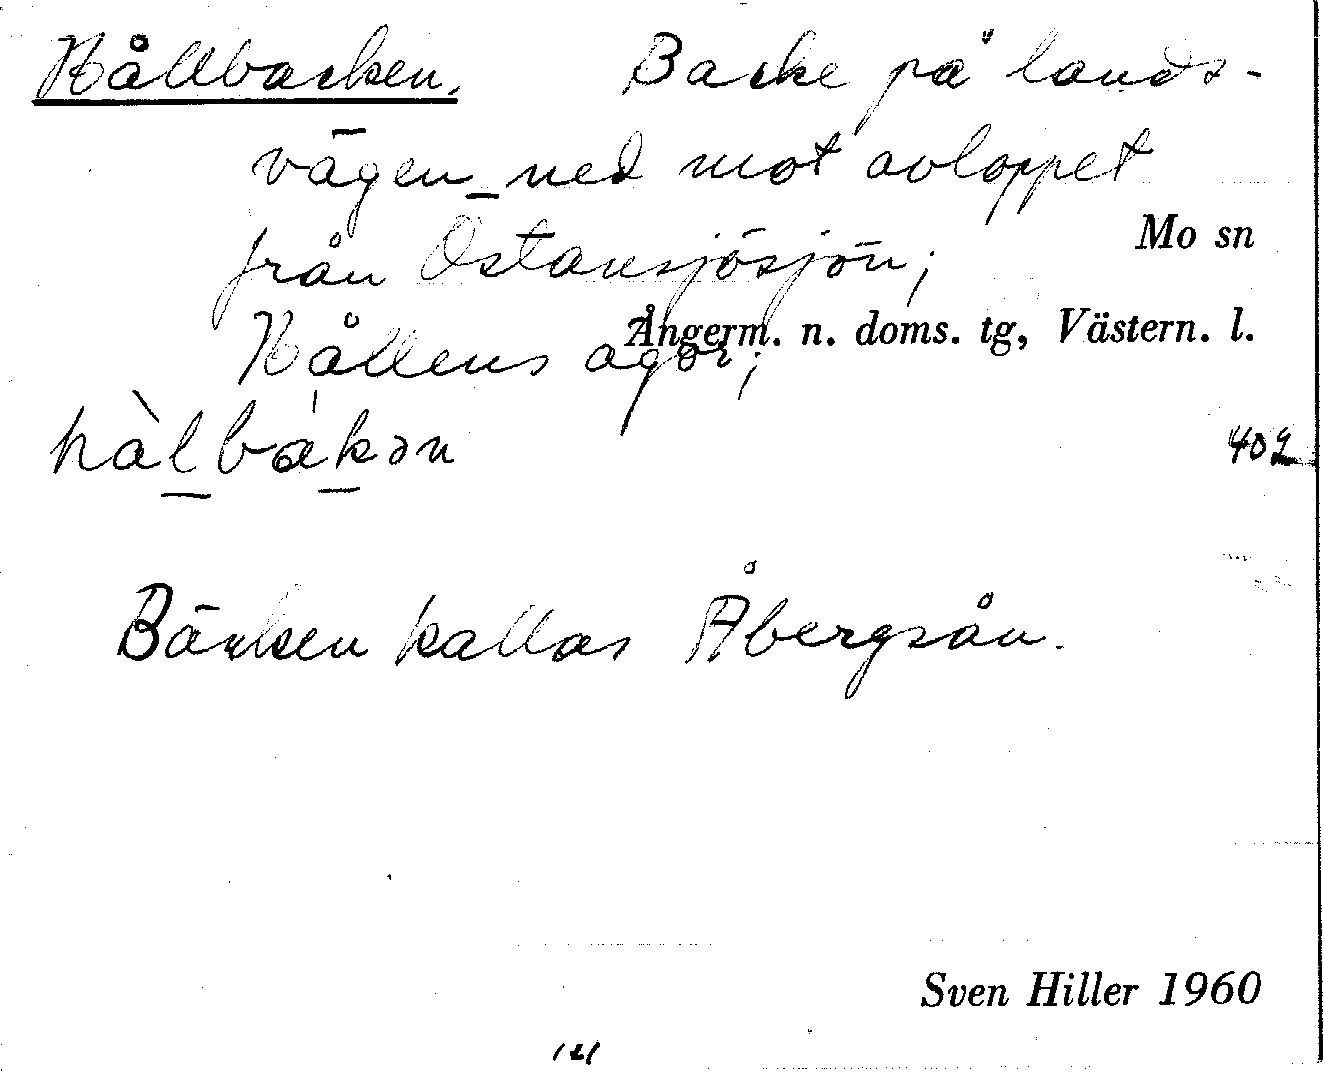 Hållbacken. Backe på lands-
vägen ned mot avloppet
från Östansjösjön;
Mo sn
Ångerm. n. doms. tg, Västern. l.
Hållens ägor;
hàlbákən
402
Bäcken kallas Åbergsån.
Sven Hiller 1960